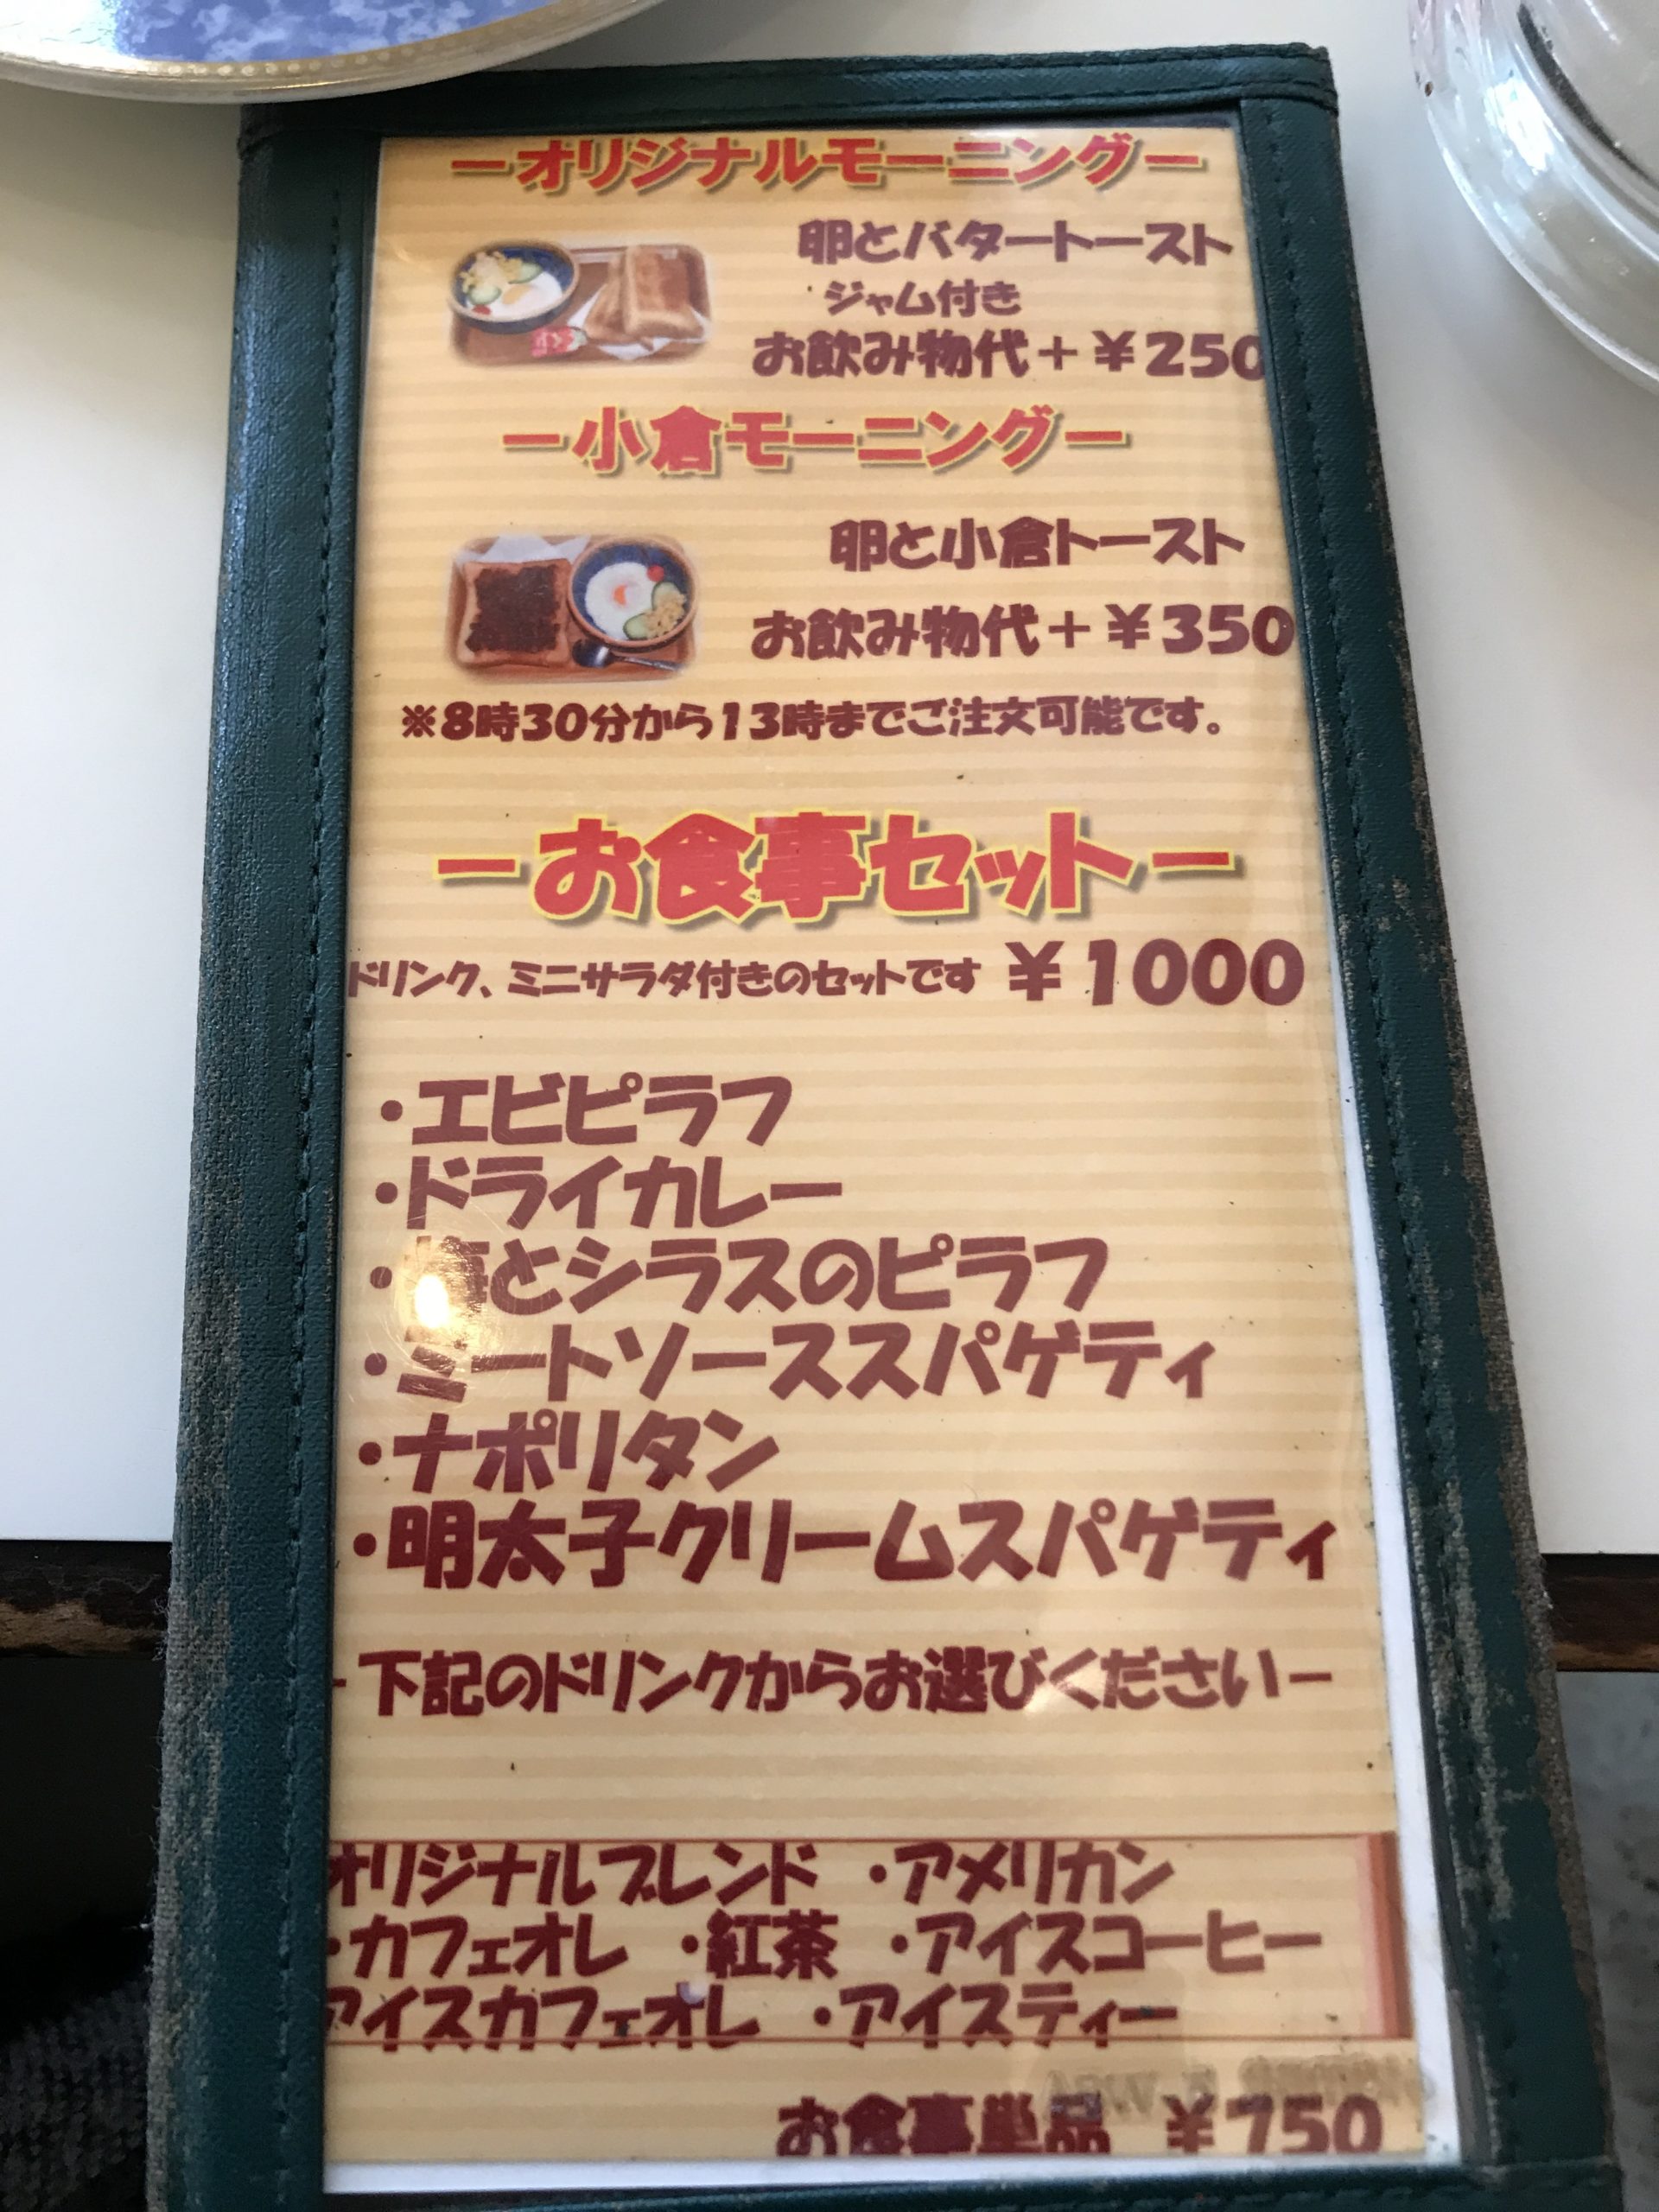 ーオリジナルモーニングー
卵とバタートースト
ジャム付き
お飲み物代＋￥250
ー小倉モーニングー
卵と小倉トースト
お飲み物代＋￥350
※8時30分から13時までご注文可能です。
ーお食事セットー
ドリンク、ミニサラダ付きのセットです ￥1000
・エビピラフ
・ドライカレー
・とシラスのピラフ
・ミートソーススパゲティ
・ナポリタン
・明太子クリームスパゲティ
ー下記のドリンクからお選びくださいー
オリジナルブレンド ・アメリカン
・カフェオレ ・紅茶 ・アイスコーヒー
アイスカフェオレ ・アイスティー
お食事単品 ￥750